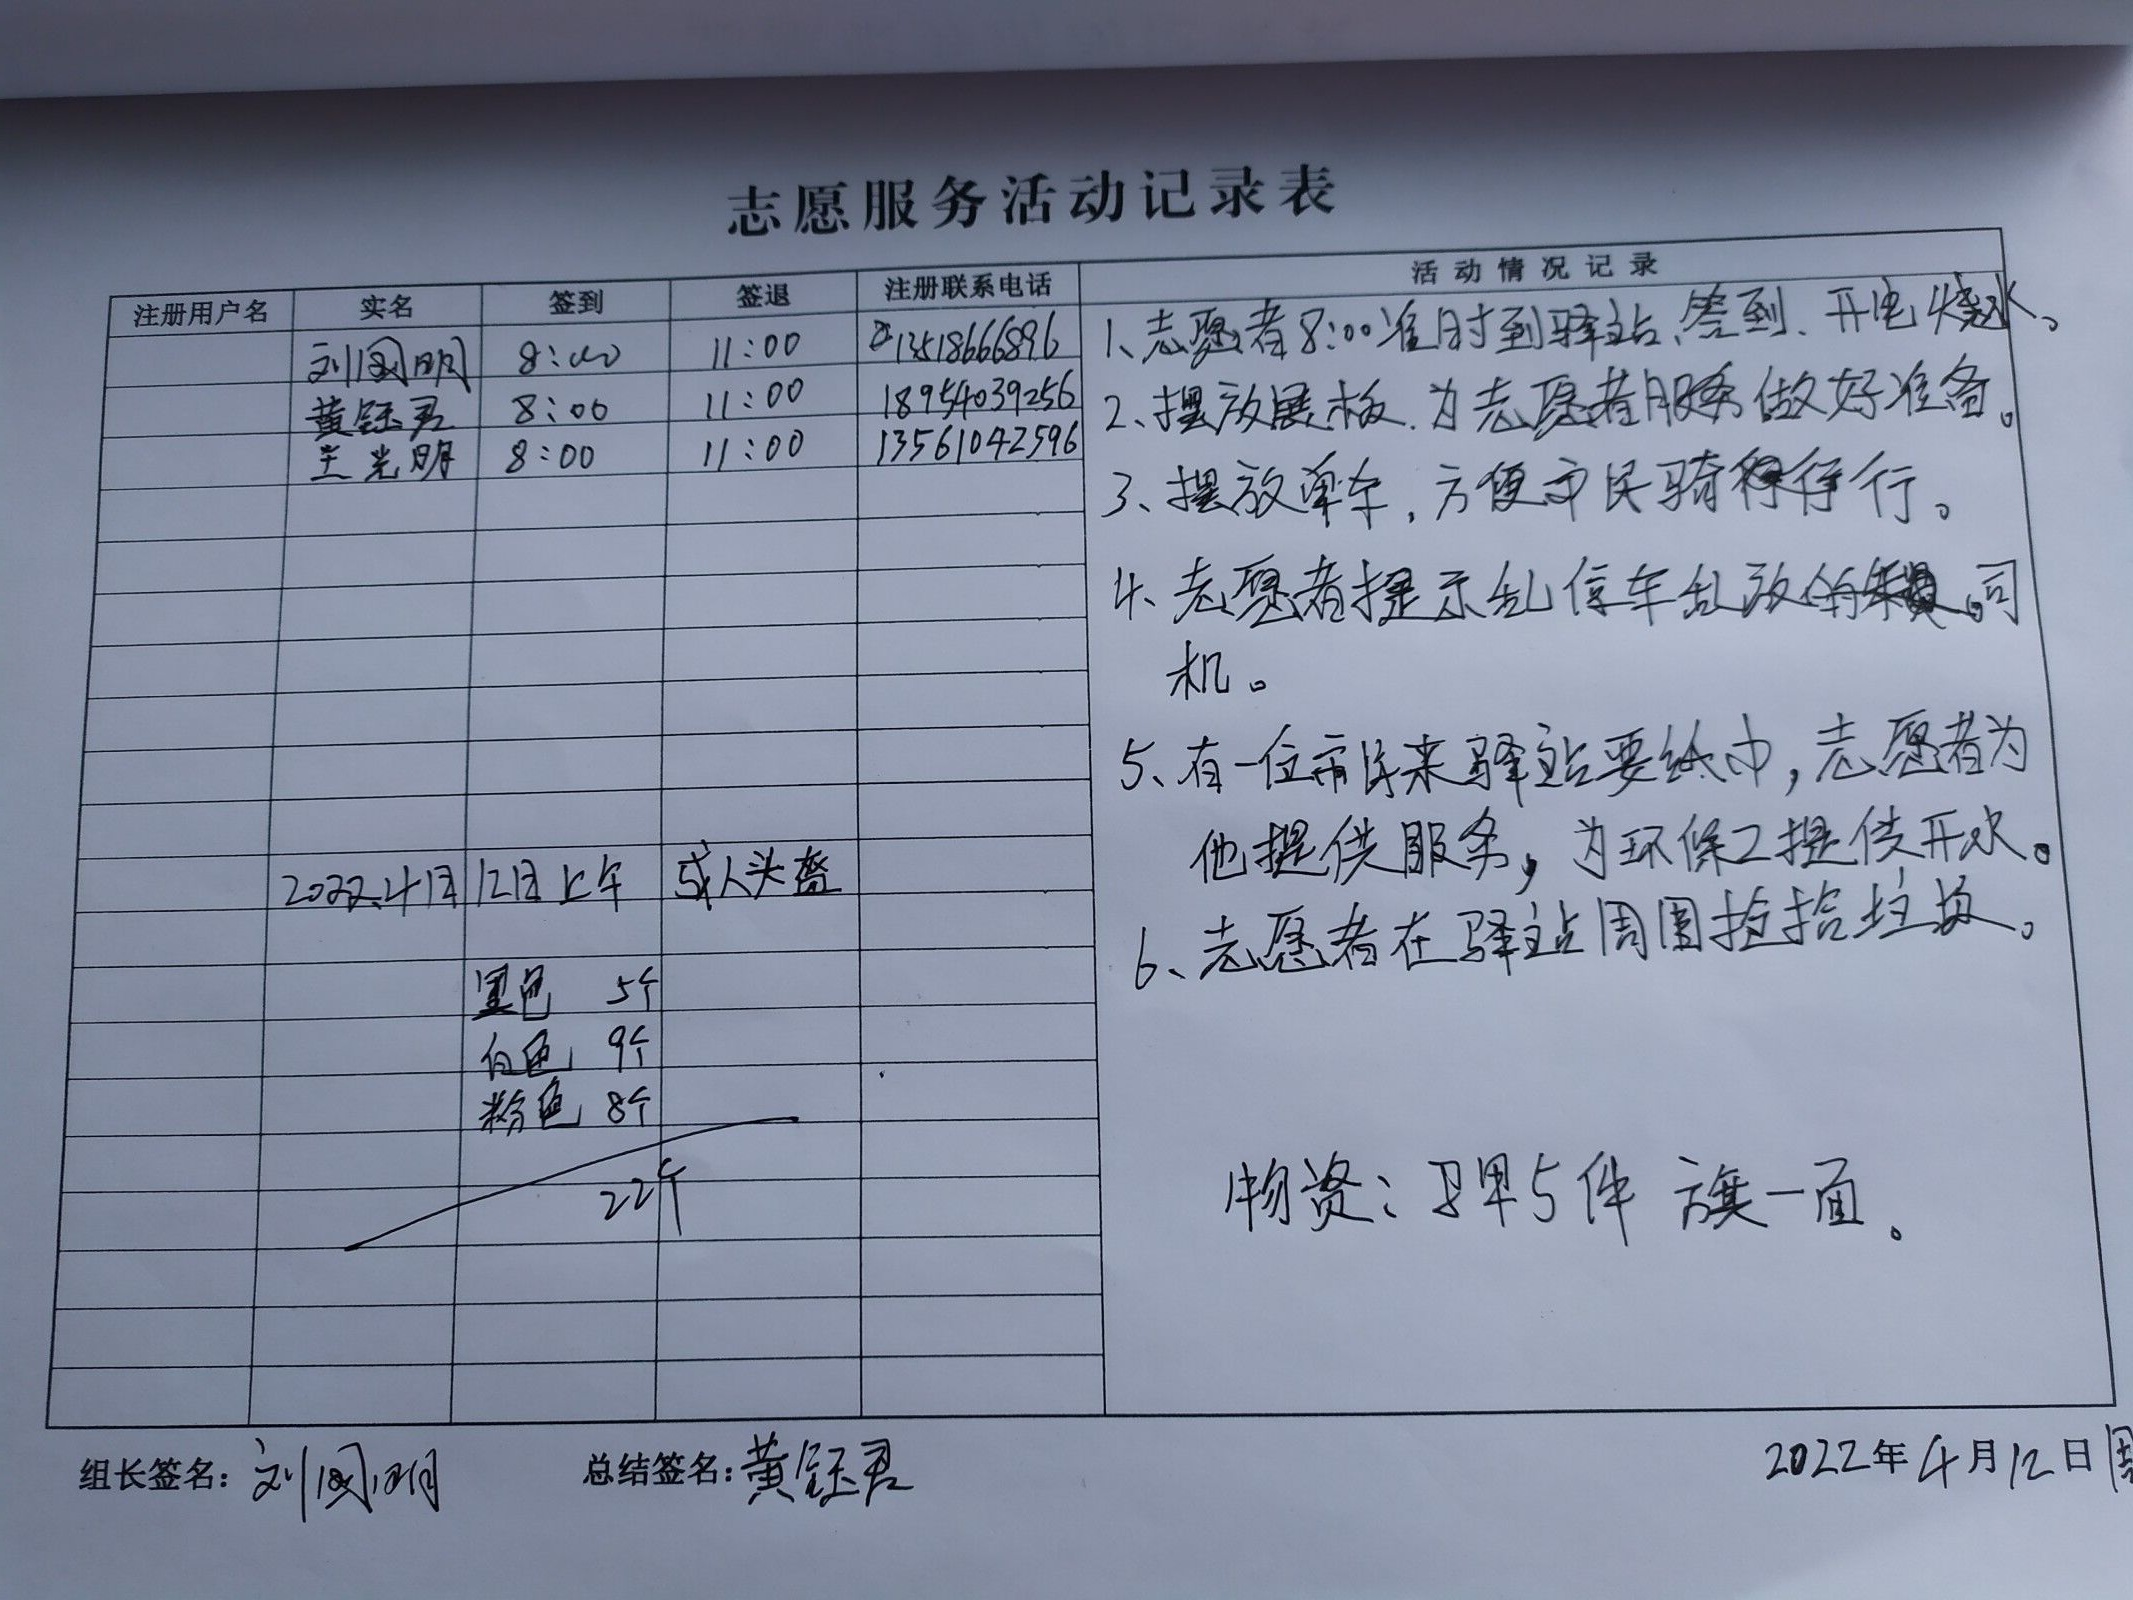 志愿服务活动记录表
注册用户名 实名 签到 签退 注册联系电话 活动情况记录
刘国明 8:00 11:00 13518666896
黄钰君 8:00 11:00 18954039256
王光明 8:00 11:00 13561042596
2022.4月 12日上午 成人头盔
黑色 5个
白色 9个
粉色 8个
22个
1、志愿者8:00准时到驿站、签到、开电烧水。
2、摆放展板.为志愿者服务做好准备。
3、摆放单车,方便市民骑行。
4、志愿者提示乱停车乱放的司
机。
5、有一位市民来驿站要纸巾,志愿者为
他提供服务,为环保工提供开水。
6、志愿者在驿站周围捡拾垃圾。
物资:马甲5件 旗一面。
组长签名:刘国明 总结签名:黄钰君 2022年4月12日周